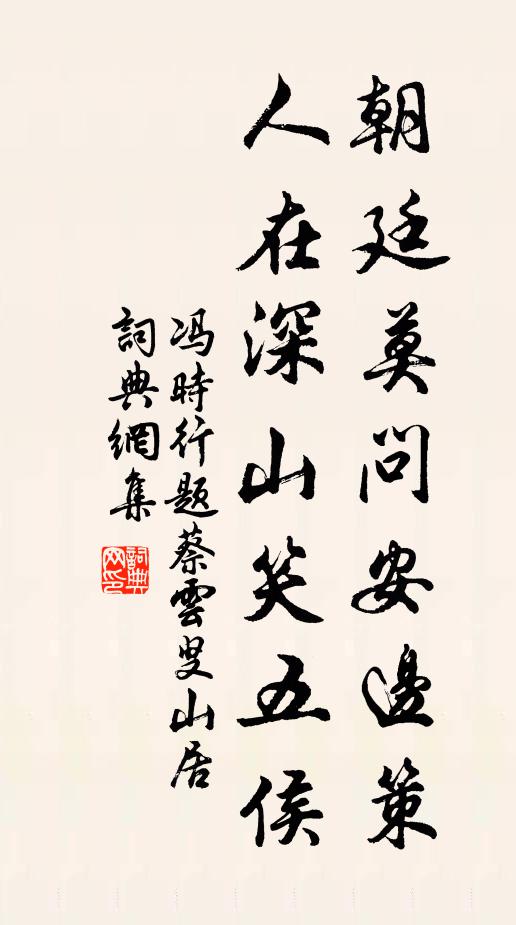 朝廷莫問安邊策
人在深山笑五侯
馮時行題蔡雲叟山居
詞典網集
詞典网印